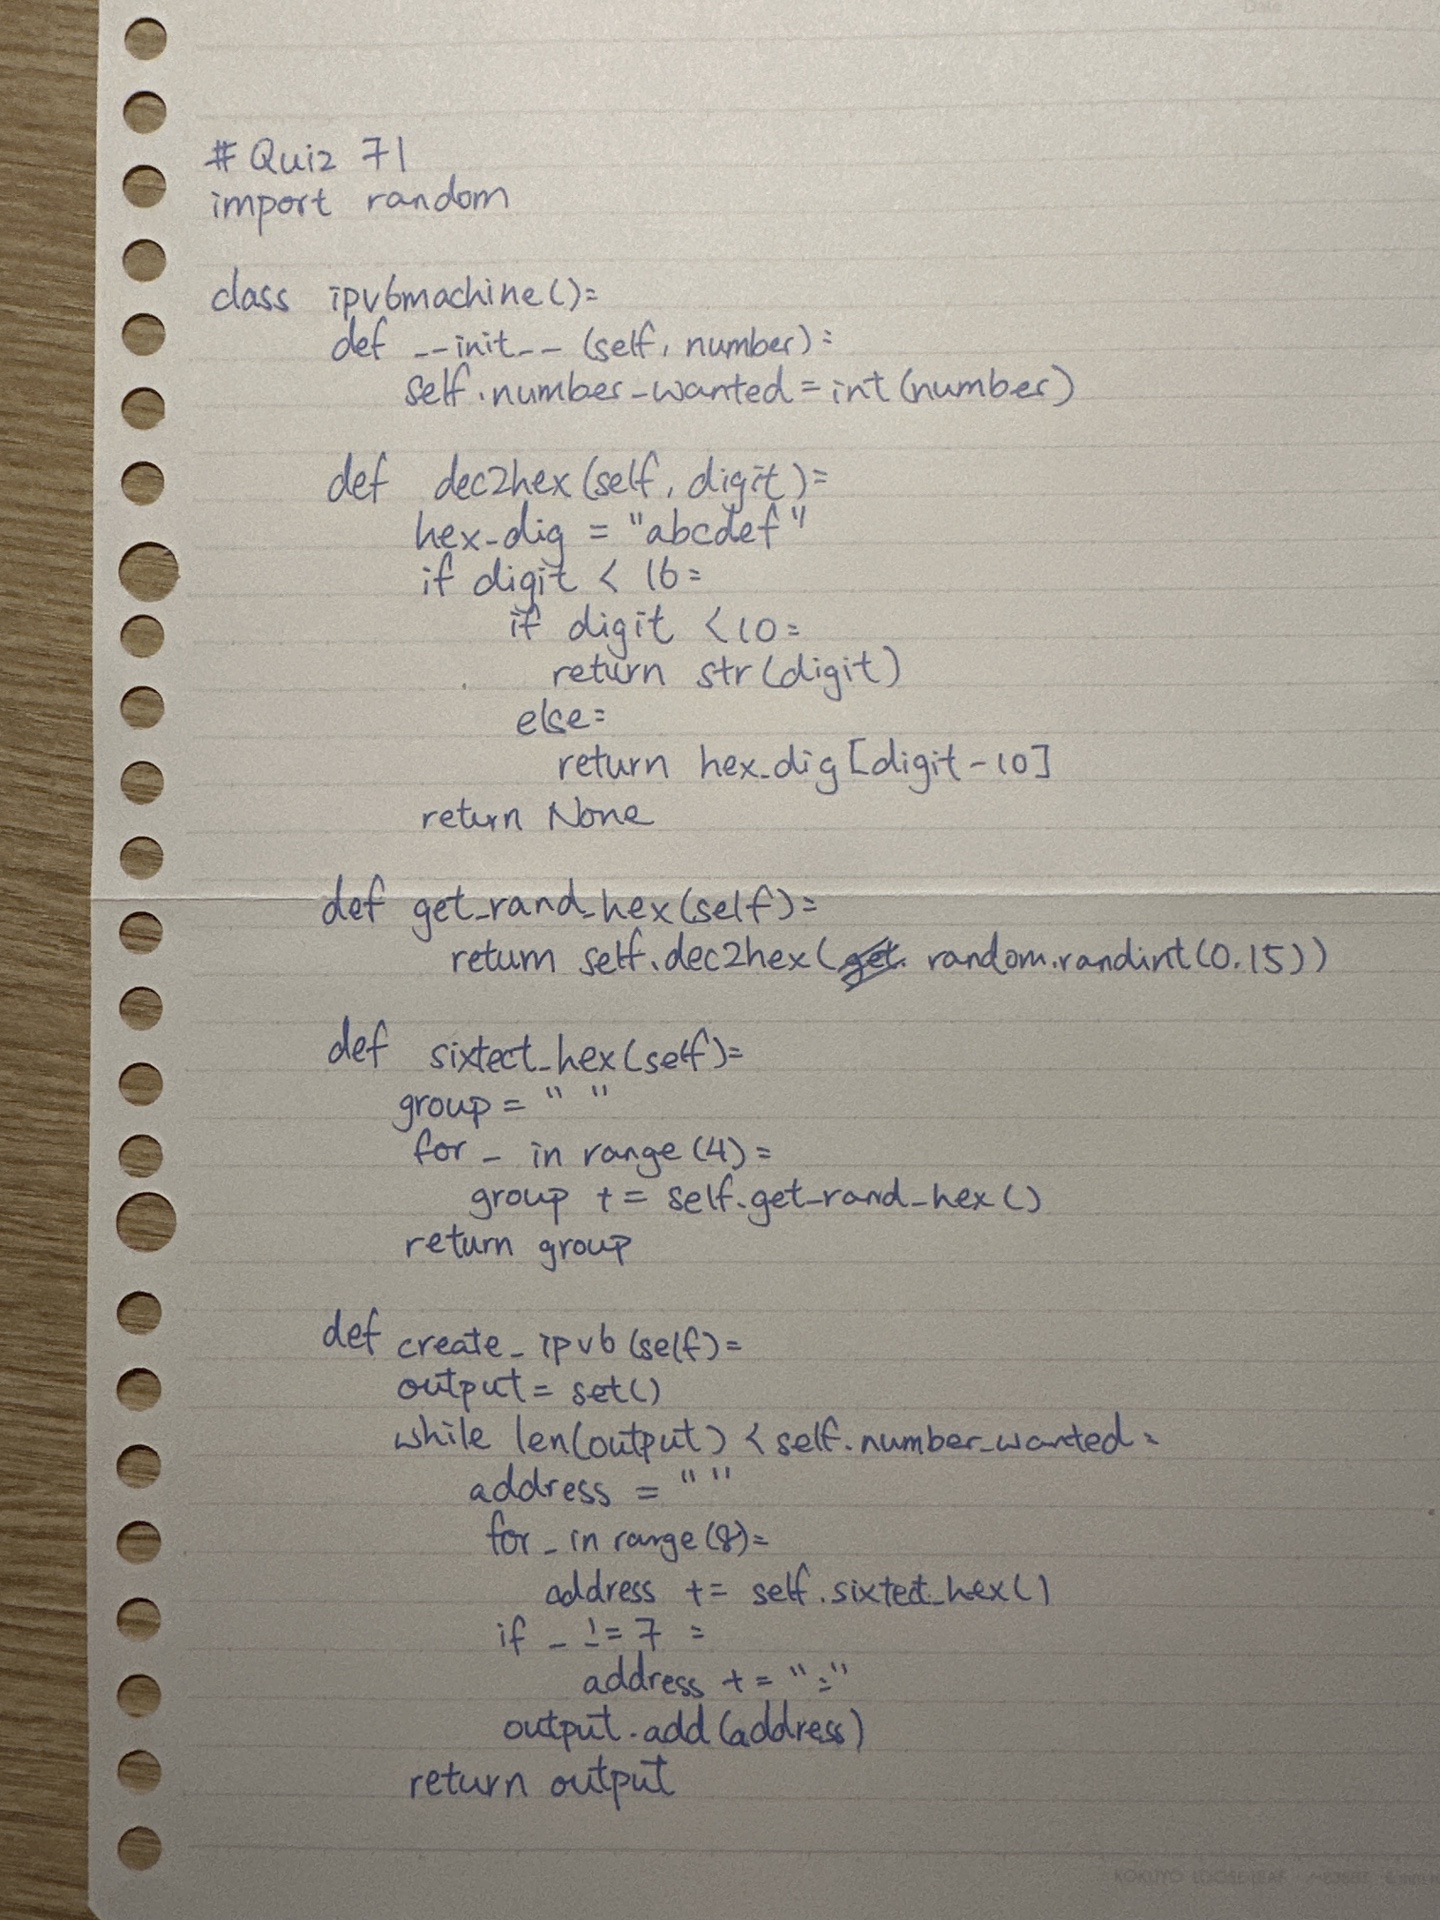 # Quiz 71
import random
class ipv6machine():
def __init__(self, number):
self.number_wanted = int(number)
def dec2hex(self, digit):
hex_dig = "abcdef"
if digit < 16:
if digit < 10:
return str(digit)
else:
return hex_dig[digit-10]
return None
def get_rand_hex(self):
return self.dec2hex(get. random.randint(0.15))
def sixtect_hex(self):
group = " "
for _ in range(4):
group += self.get_rand_hex()
return group
def create_ipv6(self):
output = set()
while len(output) < self.number_wanted:
address = ""
for _ in range(8):
address += self.sixtect_hex()
if _ != 7 :
address += ":"
output.add(address)
return output
KOKUYO LOOSE-LEAF